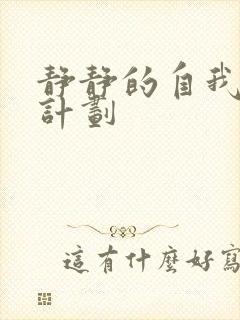 靜靜的自我
計劃
這有什麼好寫